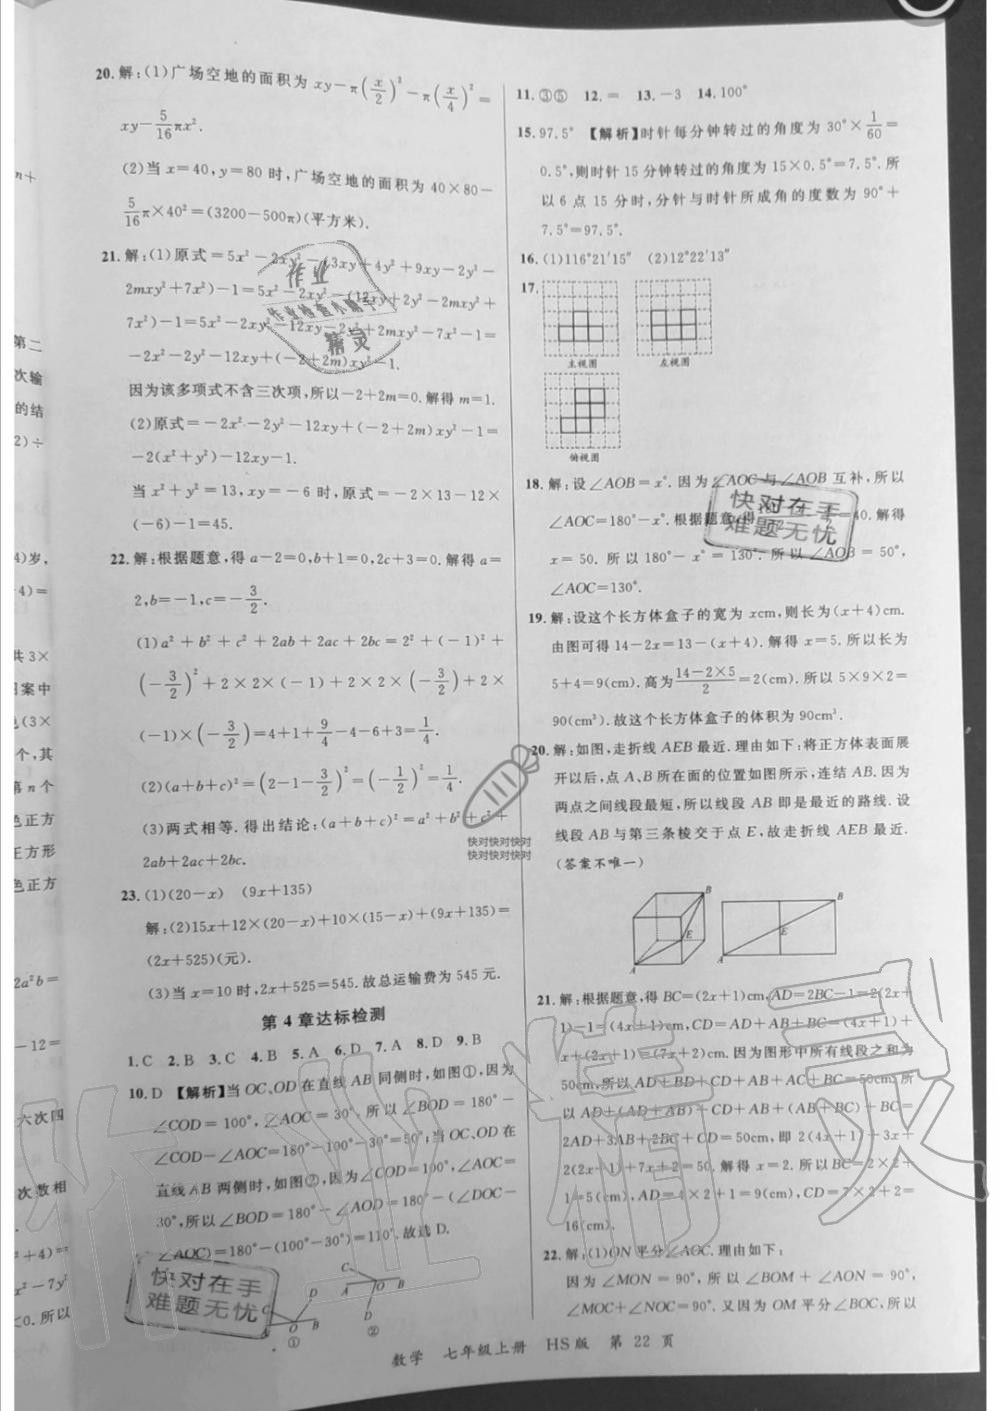 20.解:(1)广场空地的面积为 xy-π(x/2)²-π(x/4)²=
xy-5/16πx².
(2)当 x=40,y=80 时,广场空地的面积为 40×80-
5/16π×40²=(3200-500π)(平方米).
21.解:(1)原式=5x²-2xy²-(3xy+4y²+9xy-2y²-
2mxy²+7x²)-1=5x²-2xy²-(12xy+2y²-2mxy²+
7x²)-1=5x²-2xy²-12xy-2y²+2mxy²-7x²-1=
-2x²-2y²-12xy+(-2+2m)xy²-1.
因为该多项式不含三次项,所以-2+2m=0.解得 m=1.
(2)原式=-2x²-2y²-12xy+(-2+2m)xy²-1=
-2(x²+y²)-12xy-1.
当 x²+y²=13,xy=-6 时,原式=-2×13-12×
(-6)-1=45.
22.解:根据题意,得 a-2=0,b+1=0,2c+3=0.解得 a=
2,b=-1,c=-3/2.
(1)a²+b²+c²+2ab+2ac+2bc=2²+(-1)²+
(-3/2)²+2×2×(-1)+2×2×(-3/2)+2×
(-1)×(-3/2)=4+1+9/4-4-6+3=1/4.
(2)(a+b+c)²=(2-1-3/2)²=(-1/2)²=1/4.
(3)两式相等.得出结论:(a+b+c)²=a²+b²+c²+
2ab+2ac+2bc.
23.(1)(20-x) (9x+135)
解:(2)15x+12×(20-x)+10×(15-x)+(9x+135)=
(2x+525)(元).
(3)当 x=10 时,2x+525=545.故总运输费为 545 元.
第 4 章达标检测
1.C 2.B 3.C 4.B 5.A 6.D 7.A 8.D 9.B
10.D 【解析】当 OC、OD 在直线 AB 同侧时,如图①,因为
∠COD=100°,∠AOC=30°,所以∠BOD=180°-
∠COD-∠AOC=180°-100°-30°=50°;当 OC、OD 在
直线 AB 两侧时,如图②,因为∠COD=100°,∠AOC=
30°,所以∠BOD=180°-∠AOD=180°-(∠DOC-
∠AOC)=180°-(100°-30°)=110°.故选 D.
C D O B ①
C A O B D ②
11.③⑤ 12.= 13.-3 14.100°
15.97.5° 【解析】时针每分钟转过的角度为 30°×1/60=
0.5°,则时针 15 分钟转过的角度为 15×0.5°=7.5°.所
以 6 点 15 分时,分针与时针所成角的度数为 90°+
7.5°=97.5°.
16.(1)116°21′15″ (2)12°22′13″
17.
主视图 左视图
俯视图
18.解:设∠AOB=x°.因为∠AOC 与∠AOB 互补,所以
∠AOC=180°-x°.根据题意,得
=40.解得
x=50.所以 180°-x°=130°.所以∠AOB=50°,
∠AOC=130°.
19.解:设这个长方体盒子的宽为 xcm,则长为(x+4)cm.
由图可得 14-2x=13-(x+4).解得 x=5.所以长为
5+4=9(cm).高为14-2×5/2=2(cm).所以 5×9×2=
90(cm³).故这个长方体盒子的体积为 90cm³.
20.解:如图,走折线 AEB 最近.理由如下:将正方体表面展
开以后,点 A、B 所在面的位置如图所示,连结 AB.因为
两点之间线段最短,所以线段 AB 即是最近的路线.设
线段 AB 与第三条棱交于点 E,故走折线 AEB 最近.
(答案不唯一)
B E A B E A
21.解:根据题意,得 BC=(2x+1)cm,AD=2BC-1=2(2x+
1)-1=(4x+1)cm,CD=AD+AB+BC=(4x+1)+
x+(2x+1)=(7x+2)cm.因为图形中所有线段之和为
50cm,所以 AD+BD+CD+AB+AC+BC=50cm.所
以 AD+(AD+AB)+CD+AB+(AB+BC)+BC=
2AD+3AB+2BC+CD=50cm,即 2(4x+1)+3x+
2(2x+1)+7x+2=50.解得 x=2.所以 BC=2×2+
1=5(cm),AD=4×2+1=9(cm),CD=7×2+2=
16(cm).
22.解:(1)ON 平分∠AOC.理由如下:
因为∠MON=90°,所以∠BOM+∠AON=90°,
∠MOC+∠NOC=90°.又因为 OM 平分∠BOC,所以
数学 七年级上册 HS版 第 22 页
作业
作业检查小助手
精灵
快对在手
难题无忧
快对快对快对
快对快对快对
快对在手
难题无忧
作业精灵
第二
次输
的结
2)÷
4)岁,
4)=
共 3×
图案中
(3×
个,其
第 n 个
色正方
正方形
色正方
2a²b=
-12=
六次四
次数相
²+4)=
x²-7y²
<0.所以